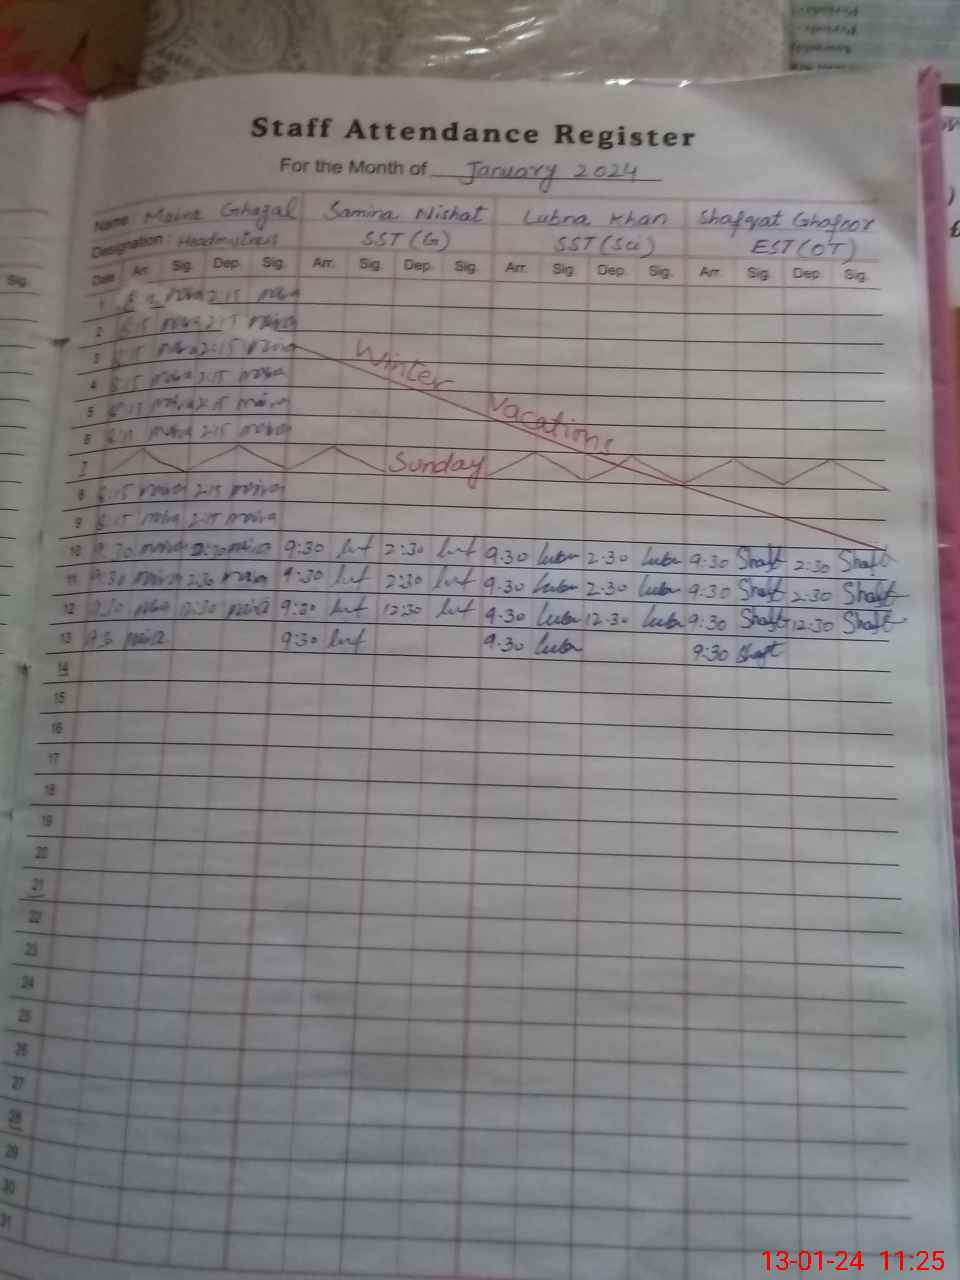 Staff Attendance Register
For the Month of January 2024
Name: Maira Ghazal Samina Nishat Lubna Khan Shafqat Ghafoor
Designation: Headmistress SST (G) SST (Sci) EST (OT)
Sig. Date Arr. Sig. Dep. Sig. Arr. Sig. Dep. Sig. Arr. Sig. Dep. Sig. Arr. Sig. Dep. Sig.
1 2:15
2 8:15 2:15 maira
3 8:15 maira 2:15 maira Winter
4 8:15 maira 2:15 maira
5 maira 2:15 maira Vacations
6 maira 2:15 maira
7 Sunday
8 8:15 maira 2:15 maira
9 8:15 maira 2:15 maira
10 9:30 maira 2:30 maira 9:30 2:30 9:30 Lubna 2:30 Lubna 9:30 Shaft 2:30 Shaft
11 9:30 maira 2:30 maira 9:30 2:30 9:30 Lubna 2:30 Lubna 9:30 Shaft 2:30 Shaft
12 9:30 maira 12:30 maira 9:30 12:30 9:30 Lubna 12:30 Lubna 9:30 Shaft 12:30 Shaft
13 maira 9:30 9:30 Lubna 9:30 Shaft
14
15
16
17
18
19
20
21
22
23
24
25
26
27
28
29
30
31
13-01-24 11:25